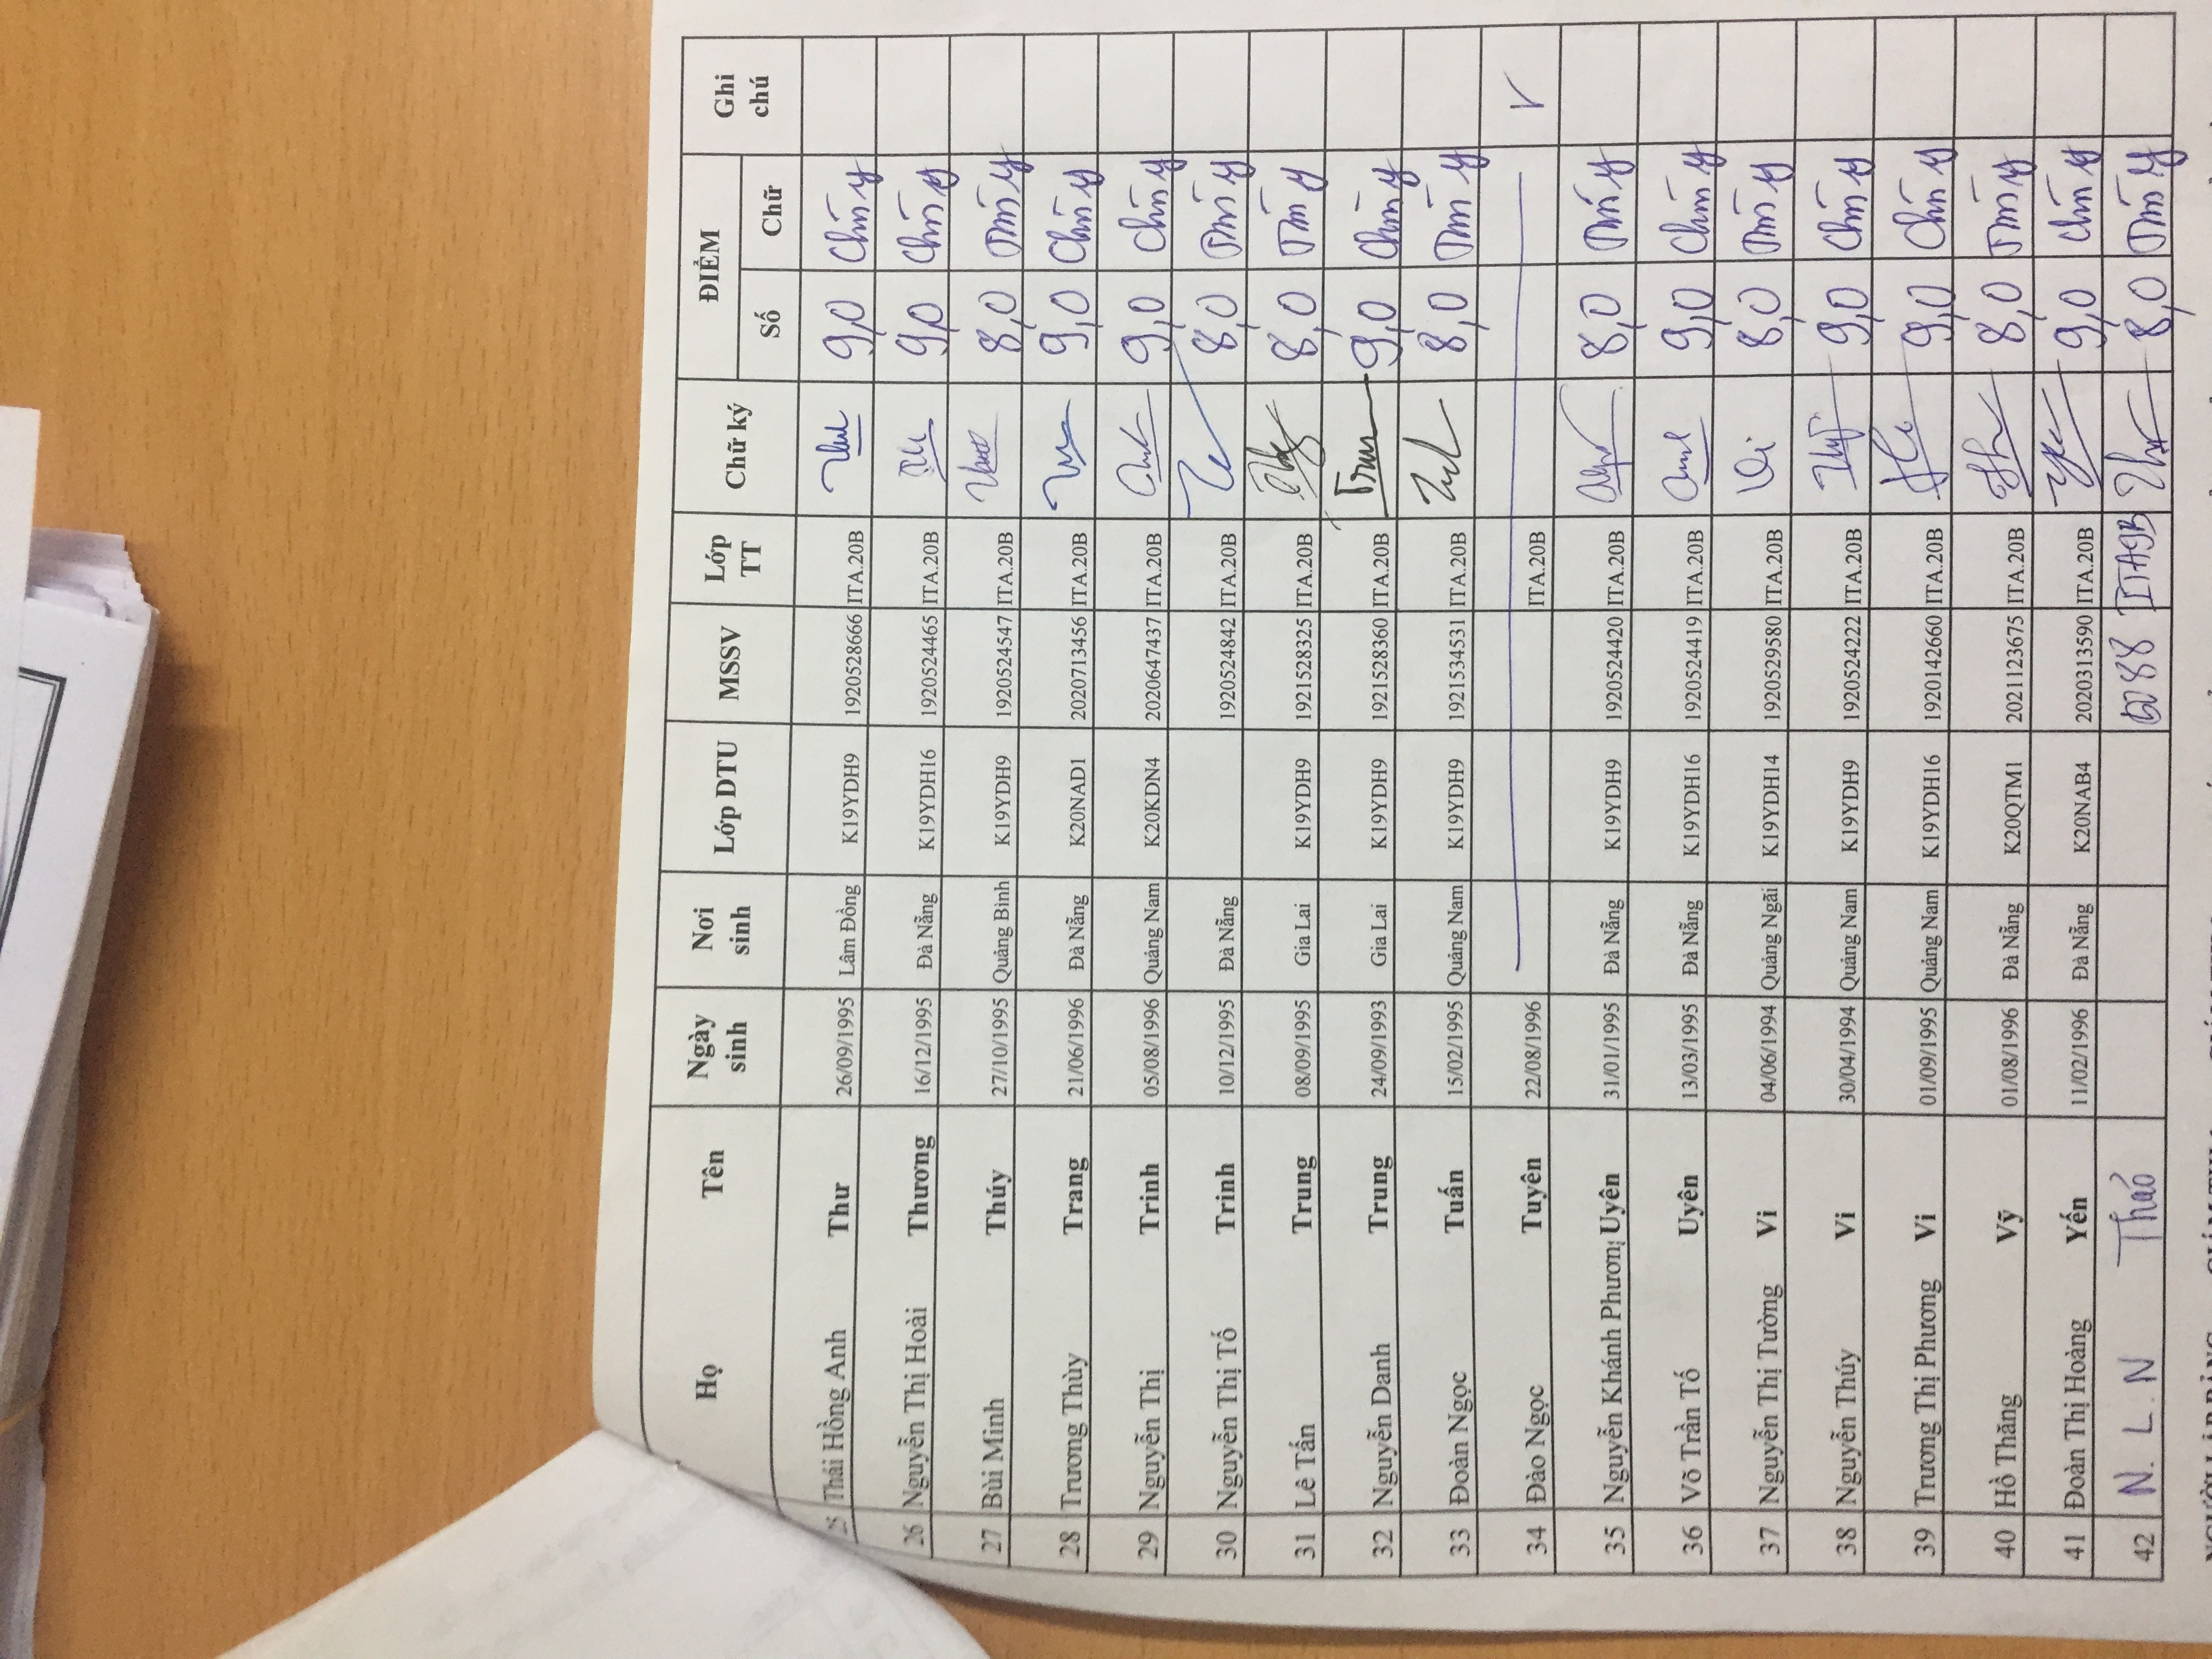 Họ Tên Ngày sinh Nơi sinh Lớp DTU MSSV Lớp TT Chữ ký ĐIỂM Ghi chú
Số Chữ
25 Thái Hồng Anh Thư 26/09/1995 Lâm Đồng K19YDH9 1920528666 ITA.20B 9,0 Chín
26 Nguyễn Thị Hoài Thương 16/12/1995 Đà Nẵng K19YDH16 1920524465 ITA.20B 9,0 Chín
27 Bùi Minh Thúy 27/10/1995 Quảng Bình K19YDH9 1920524547 ITA.20B 8,0 Tám
28 Trương Thùy Trang 21/06/1996 Đà Nẵng K20NAD1 2020713456 ITA.20B 9,0 Chín
29 Nguyễn Thị Trinh 05/08/1996 Quảng Nam K20KDN4 2020647437 ITA.20B 9,0 Chín
30 Nguyễn Thị Tố Trinh 10/12/1995 Đà Nẵng 1920524842 ITA.20B 8,0 Tám
31 Lê Tấn Trung 08/09/1995 Gia Lai K19YDH9 1921528325 ITA.20B 8,0 Tám
32 Nguyễn Danh Trung 24/09/1993 Gia Lai K19YDH9 1921528360 ITA.20B 9,0 Chín
33 Đoàn Ngọc Tuấn 15/02/1995 Quảng Nam K19YDH9 1921534531 ITA.20B 8,0 Tám
34 Đào Ngọc Tuyên 22/08/1996 ITA.20B V
35 Nguyễn Khánh Phương Uyên 31/01/1995 Đà Nẵng K19YDH9 1920524420 ITA.20B 8,0 Tám
36 Võ Trần Tố Uyên 13/03/1995 Đà Nẵng K19YDH16 1920524419 ITA.20B 9,0 Chín
37 Nguyễn Thị Tường Vi 04/06/1994 Quảng Ngãi K19YDH14 1920529580 ITA.20B Vi 8,0 Tám
38 Nguyễn Thúy Vi 30/04/1994 Quảng Nam K19YDH9 1920524222 ITA.20B 9,0 Chín
39 Trương Thị Phương Vi 01/09/1995 Quảng Nam K19YDH16 1920142660 ITA.20B 9,0 Chín
40 Hồ Thăng Vỹ 01/08/1996 Đà Nẵng K20QTM1 2021123675 ITA.20B 8,0 Tám
41 Đoàn Thị Hoàng Yến 11/02/1996 Đà Nẵng K20NAB4 2020313590 ITA.20B 9,0 Chín
42 N.L.N Thảo ITA9B 8,0 Tám